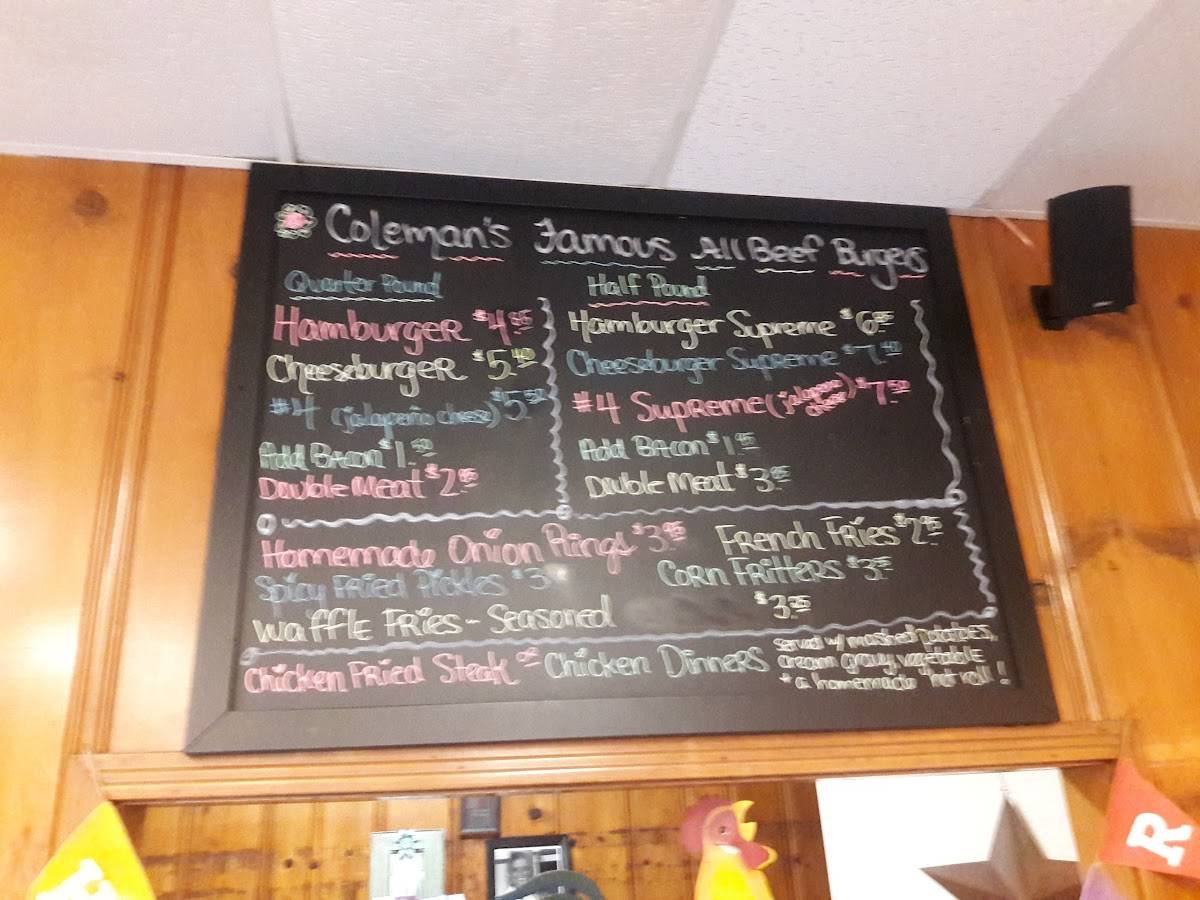 Coleman's Famous All Beef Burgers
Quarter Pound
Hamburger $4.95
Cheeseburger $5.40
#4 (jalapeño cheese) $5.50
Add Bacon $1.50
Double Meat $2.95
Half Pound
Hamburger Supreme $6.95
Cheeseburger Supreme $7.40
#4 Supreme (jalapeno cheese) $7.50
Add Bacon $1.95
Double Meat $3.95
Homemade Onion Rings $3.95
French Fries $2.95
Spicy Fried Pickles
Corn Fritters
Waffle Fries - Seasoned $3.25
Chicken Fried Steak or Chicken Dinners
served w/ mashed potatoes,
cream gravy, vegetable
+ a homemade hot roll!
R